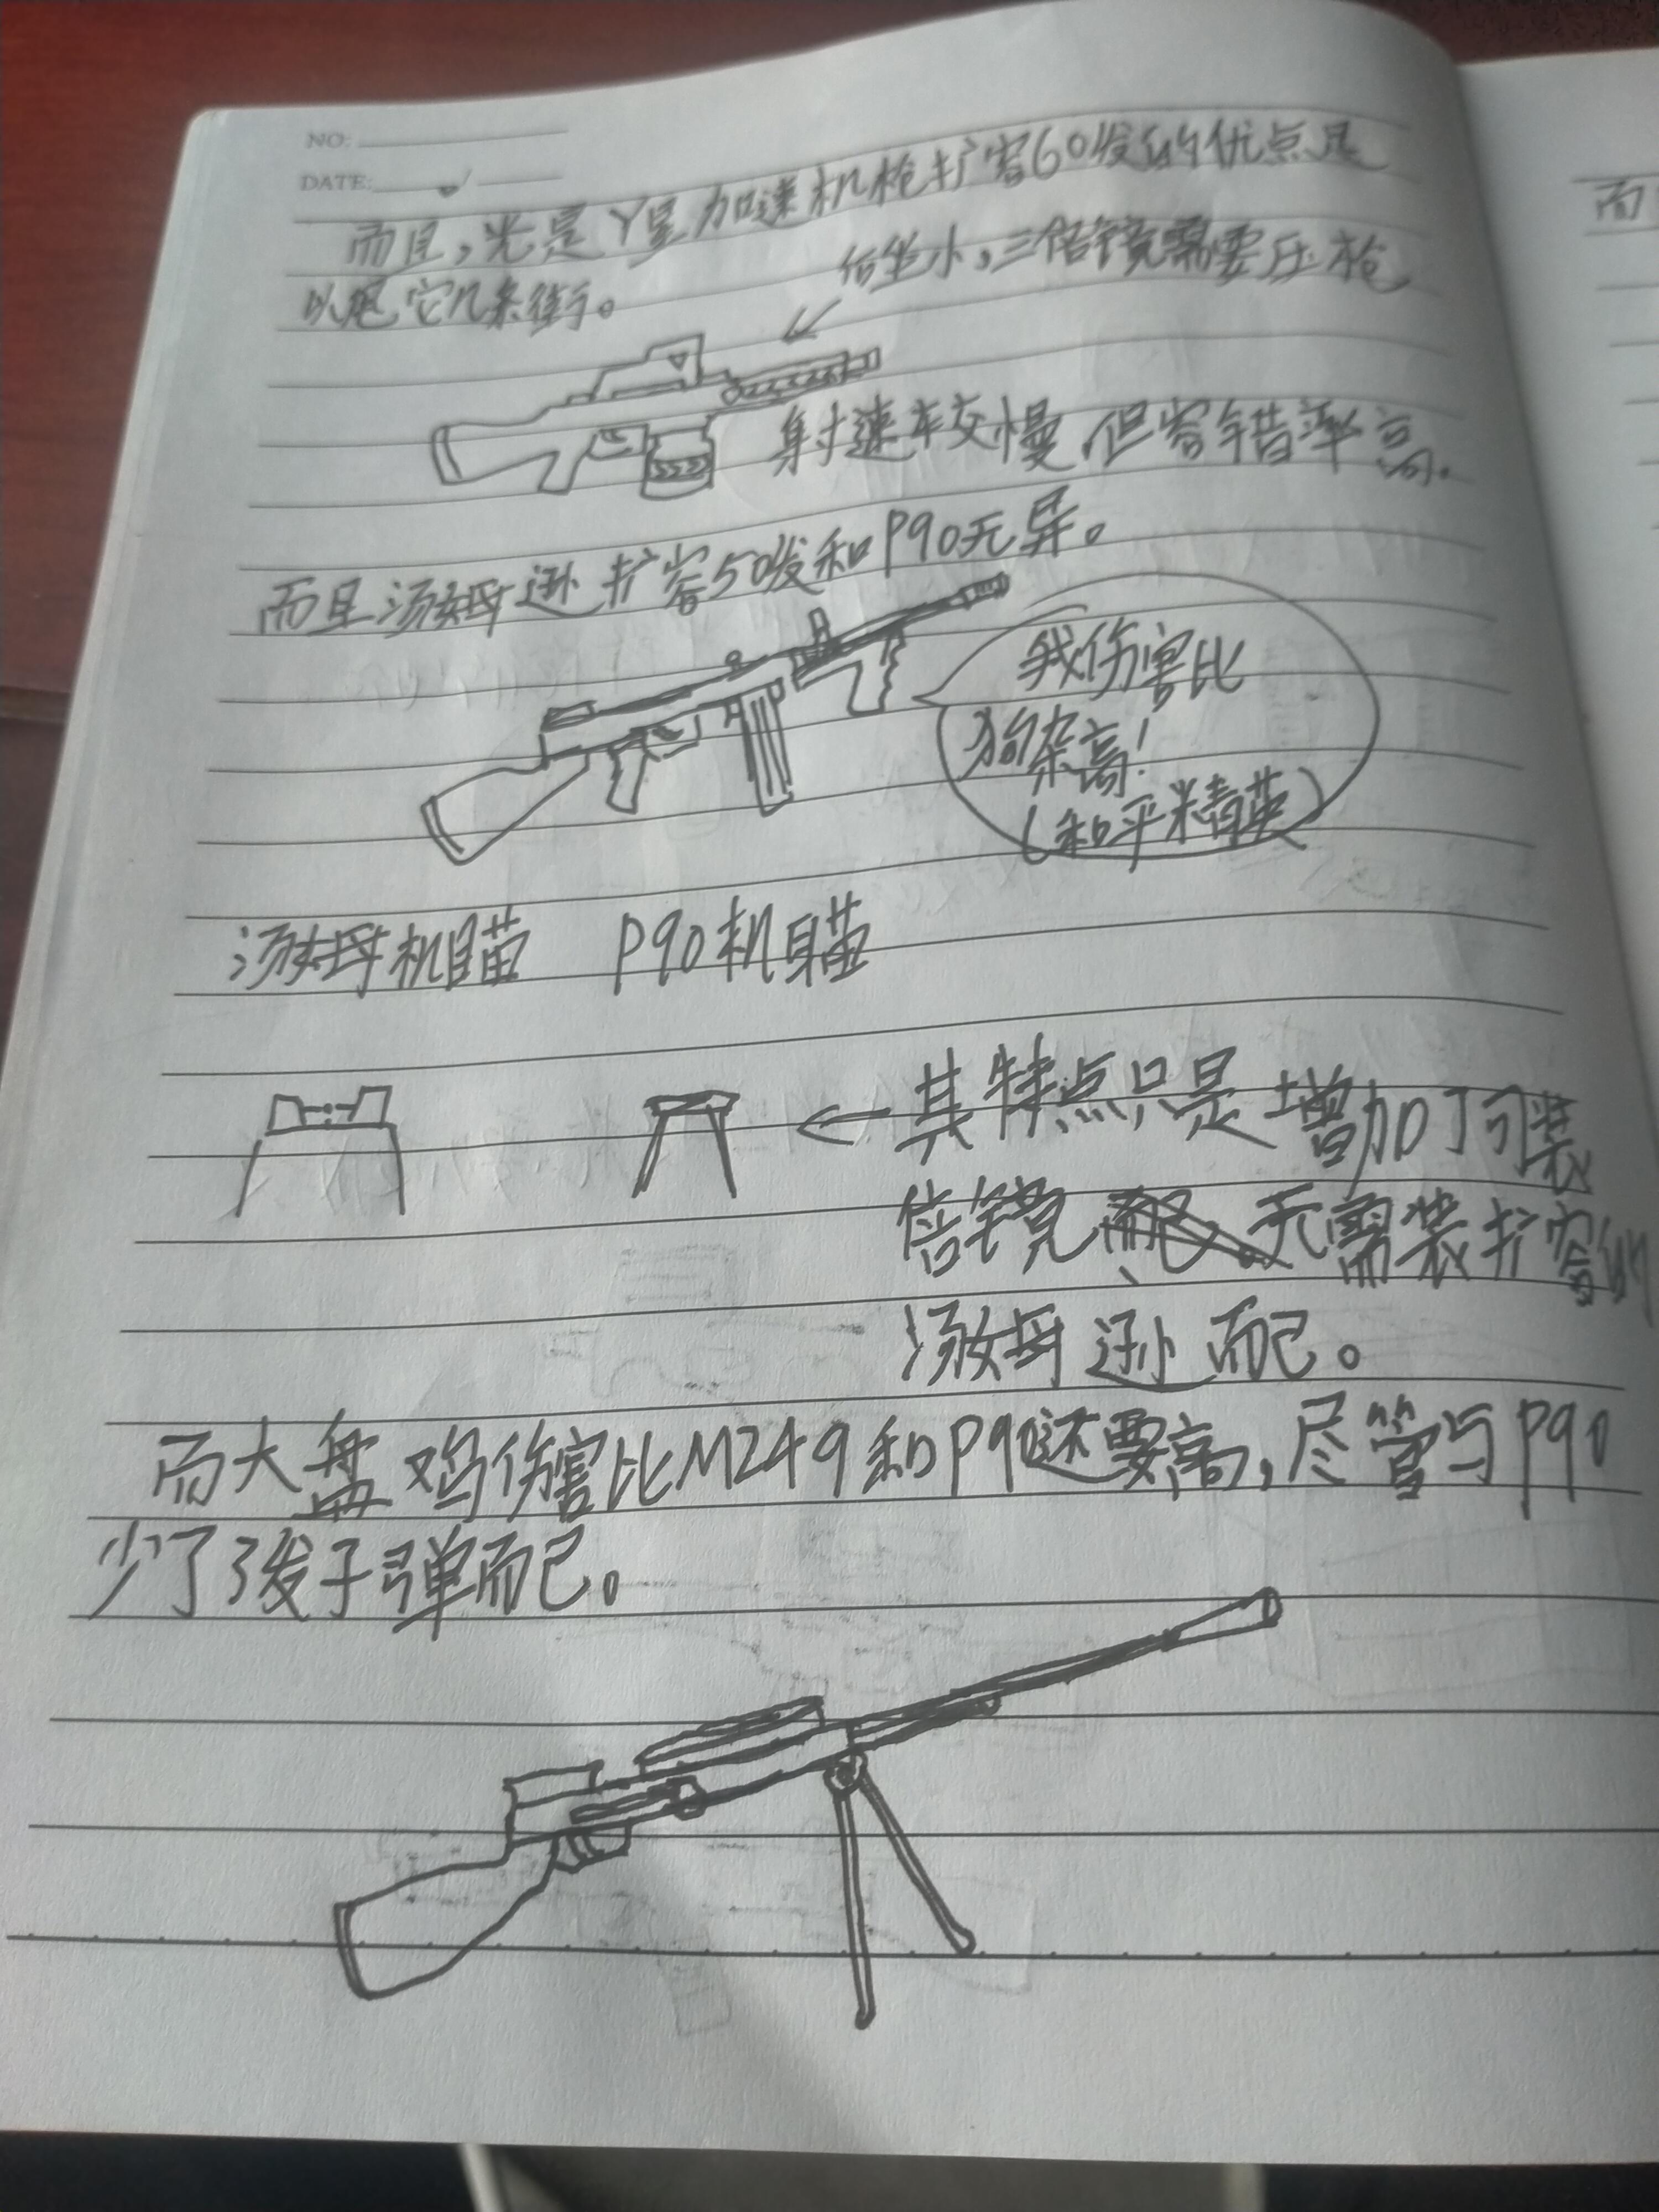 NO:
DATE:
而且,光是丫星加速机枪扩容60发的优点足
以甩它几条街。
后坐小,三倍镜需要压枪
射速较慢,但容错率高.
而且汤姆逊扩容50发和P90无异。
我伤害比
狗杂高!
(和平精英)
汤姆机瞄 P90机瞄
←其特点只是增加了可装
倍镜、无需装扩容的
汤姆逊而已。
而大盘鸡伤害比M249和P90还要高,尽管与P90
少了3发子弹而已。
而